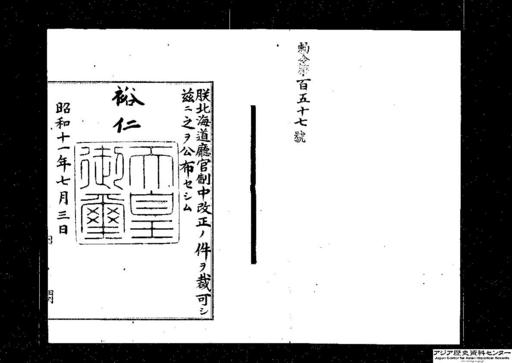 勅令第百五十七號
朕北海道廳官制中改正ノ件ヲ裁可シ
茲ニ之ヲ公布セシム
裕仁
天皇御璽
昭和十一年七月三日
アジア歴史資料センター
Japan Center for Asian Historical Records